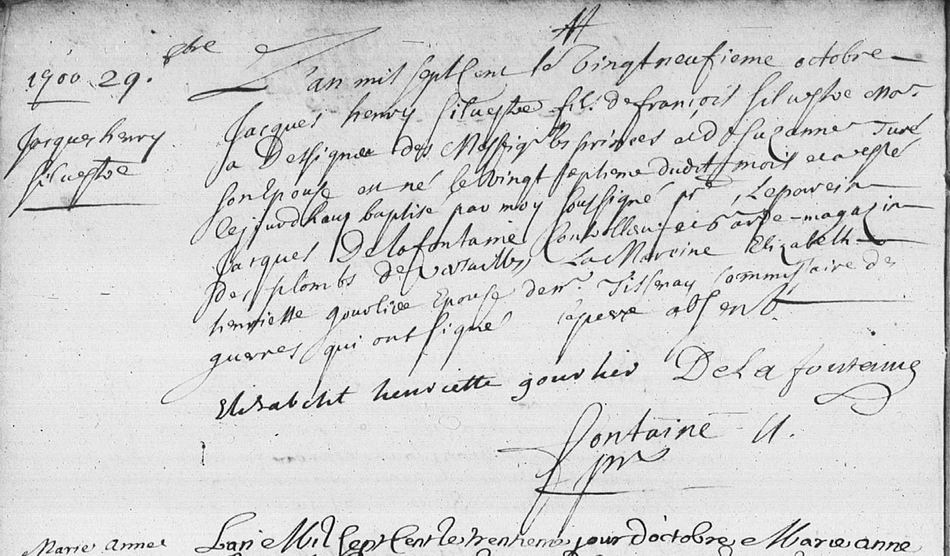 1700 29. 8bre
Jacques henry
silvestre
L'an mil sept cent le vingt neufieme octobre
Jacques henry silvestre fils de françois silvestre Me
a Dessigner des princes et de suzanne Turé
son Epouse est né le vingt septieme dudit mois et a esté
cejourdhuy baptisé par moy soussigné pre Leparein
Jacques Delafontaine Controlleur et Garde-magazin
des plombs de Versailles La Mareine Elizabeth
henriette gourliee Epouse de mr. Tissenay Commissaire des
guerres qui ont signé le pere absent
Elisabeht henriette gourlier DeLafontaine
fontaine
ptre
Marie Anne L'an Mil Sept Cent le trentieme jour d'octobre Marie anne